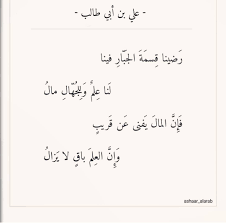 - علي بن أبي طالب -
رَضينا قِسمَةَ الجَبّارِ فينا
لَنا عِلمٌ وَلِلجُهّالِ مالُ
فَإِنَّ المالَ يَفنى عَن قَريبٍ
وَإِنَّ العِلمَ باقٍ لا يَزالُ
ashaar_alarab